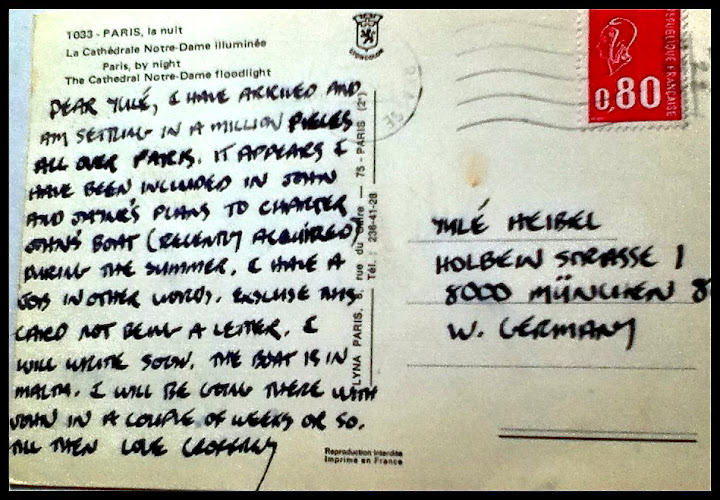 1033 - PARIS, la nuit
La Cathédrale Notre-Dame illuminée
Paris, by night
The Cathedral Notre-Dame floodlight
LYONCOLOR
DEAR YULÉ, I HAVE ARRIVED AND
AM SETTLING IN A MILLION PIECES
ALL OVER PARIS. IT APPEARS I
HAVE BEEN INCLUDED IN JOHN
AND JAYNE'S PLANS TO CHARTER
JOHN'S BOAT (RECENTLY ACQUIRED)
DURING THE SUMMER. I HAVE A
JOB IN OTHER WORDS. EXSCUSE THIS
CARD NOT BEING A LETTER. I
WILL WRITE SOON. THE BOAT IS IN
MALTA. I WILL BE GOING THERE WITH
JOHN IN A COUPLE OF WEEKS OR SO.
TILL THEN LOVE GEOFFREY
LYNA PARIS, 8, rue du Caire — 75 - PARIS (2e)
Tél. : 236-41-28
Reproduction interdite
Imprimé en France
0,80
FRANÇAISE
YULÉ HEIBEL
HOLBEIN STRASSE 1
8000 MÜNCHEN 8
W. GERMANY